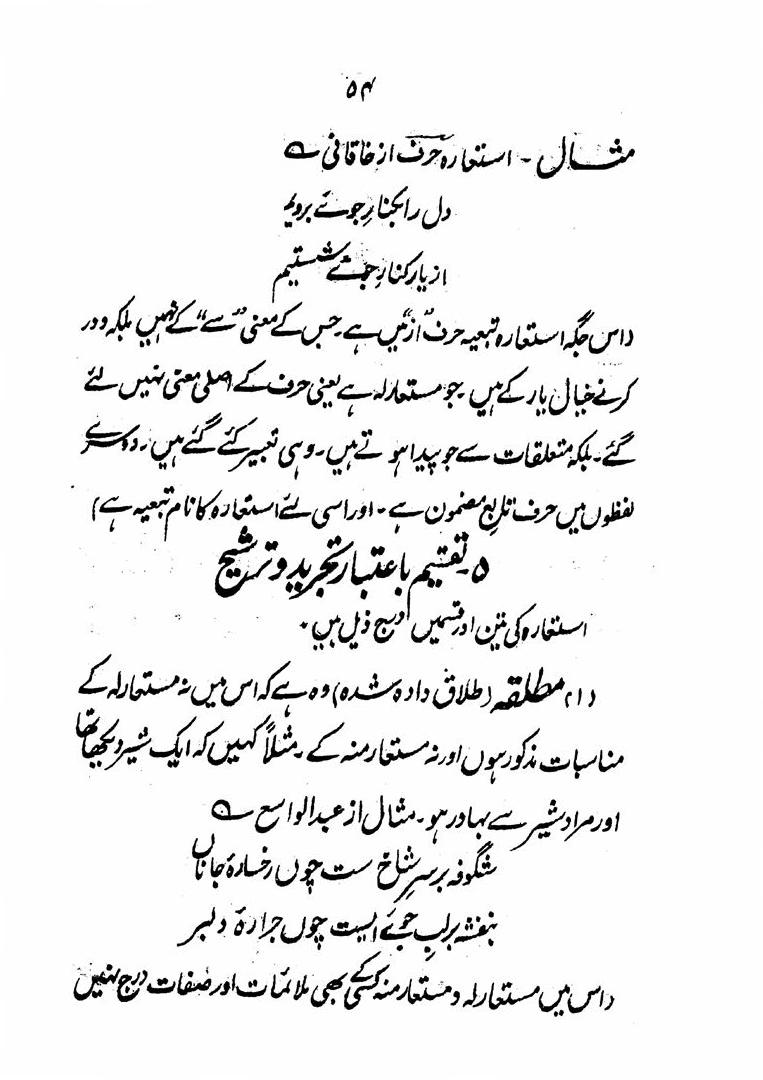 ۵۴
مثال - استعارہ حرف از خاقانی ؎
دل را بکنارِ جوئے بردیم
از یار کنارِ جوئے شستیم
(اس جگہ استعارہ تبعیہ حرف "از" میں ہے۔ جس کے معنی "سے" کے نہیں بلکہ دور
کرنے خیال یار کے ہیں۔ جو مستعار لہ ہے یعنی حرف کے اصلی معنی نہیں لئے
گئے۔ بلکہ متعلقات سے جو پیدا ہوتے ہیں۔ وہی تعبیر کئے گئے ہیں۔ دوسرے
لفظوں میں حرف تابع مضمون ہے۔ اور اسی لئے استعارہ کا نام تبعیہ ہے)
۵۔ تقسیم باعتبار تجرید و ترشیح
استعارہ کی تین اور قسمیں درج ذیل ہیں۔
(۱) مطلقہ (طلاق دادہ شدہ) وہ ہے کہ اس میں نہ مستعار لہ کے
مناسبات مذکور ہوں اور نہ مستعار منہ کے۔ مثلاً کہیں کہ ایک شیر دیکھا تھا
اور مراد شیر سے بہادر ہو۔ مثال از عبدالواسع ؎
شگوفہ بر سرِ شاخ ست چوں رخسارۂ جاناں
بنفشہ بر لبِ جوئے است چوں جرارۂ دلبر
(اس میں مستعار لہ و مستعار منہ کسی کے بھی ملائمات اور صفات درج نہیں